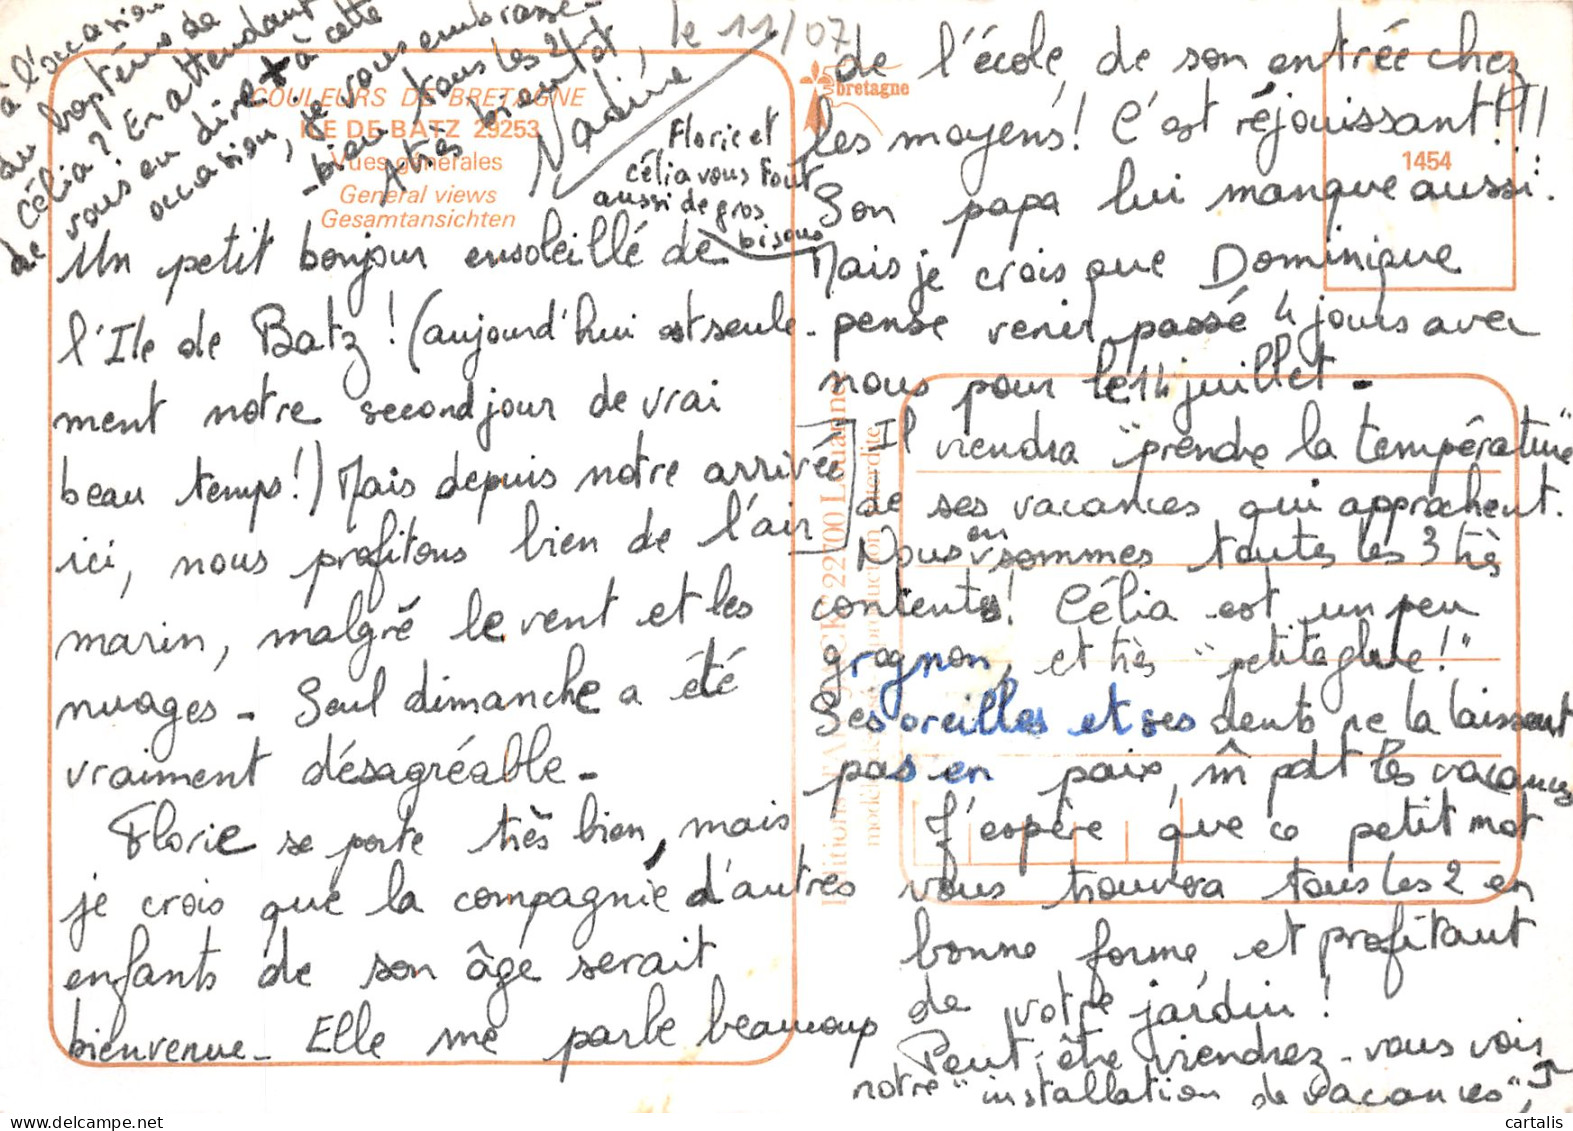 le 11/07
COULEURS DE BRETAGNE
ILE DE BATZ 29253
Vues générales
General views
Gesamtansichten
bretagne
1454
Un petit bonjour ensoleillé de
l'Ile de Batz ! (aujourd'hui est seule-
ment notre second jour de vrai
beau temps !) Mais depuis notre arrivée
ici, nous profitons bien de l'air
marin, malgré le vent et les
nuages - Seul dimanche a été
vraiment désagréable -
Florie se porte très bien, mais
je crois que la compagnie d'autres
enfants de son âge serait
bienvenue - Elle me parle beaucoup
de l'école, de son entrée chez
les moyens ! C'est réjouissant !!!!
Son papa lui manque aussi.
Mais je crois que Dominique
pense venir passé 4 jours avec
nous pour le 14 juillet -
Il viendra "prendre la température"
de ses vacances qui approchent.
Nous en sommes toutes les 3 très
contentes ! Célia est un peu
grognon, et très "petite glue !"
Ses oreilles et ses dents ne la laissent
pas en paix, m̂ pdt les vacances
J'espère que ce petit mot
vous trouvera tous les 2 en
bonne forme, et profitant
de votre jardin !
Peut-être viendrez-vous voir
notre "installation de vacances",
à l'occasion
du baptême de
Célia ? En attendant
de vous en dire + à cette
occasion, je vous embrasse
bien tous les 2.
A très bientôt
Nadine
Florie et
Célia vous font
aussi de gros
bisous
Editions JACK 22700 Louannec
modèle reproduction interdite
cartalis